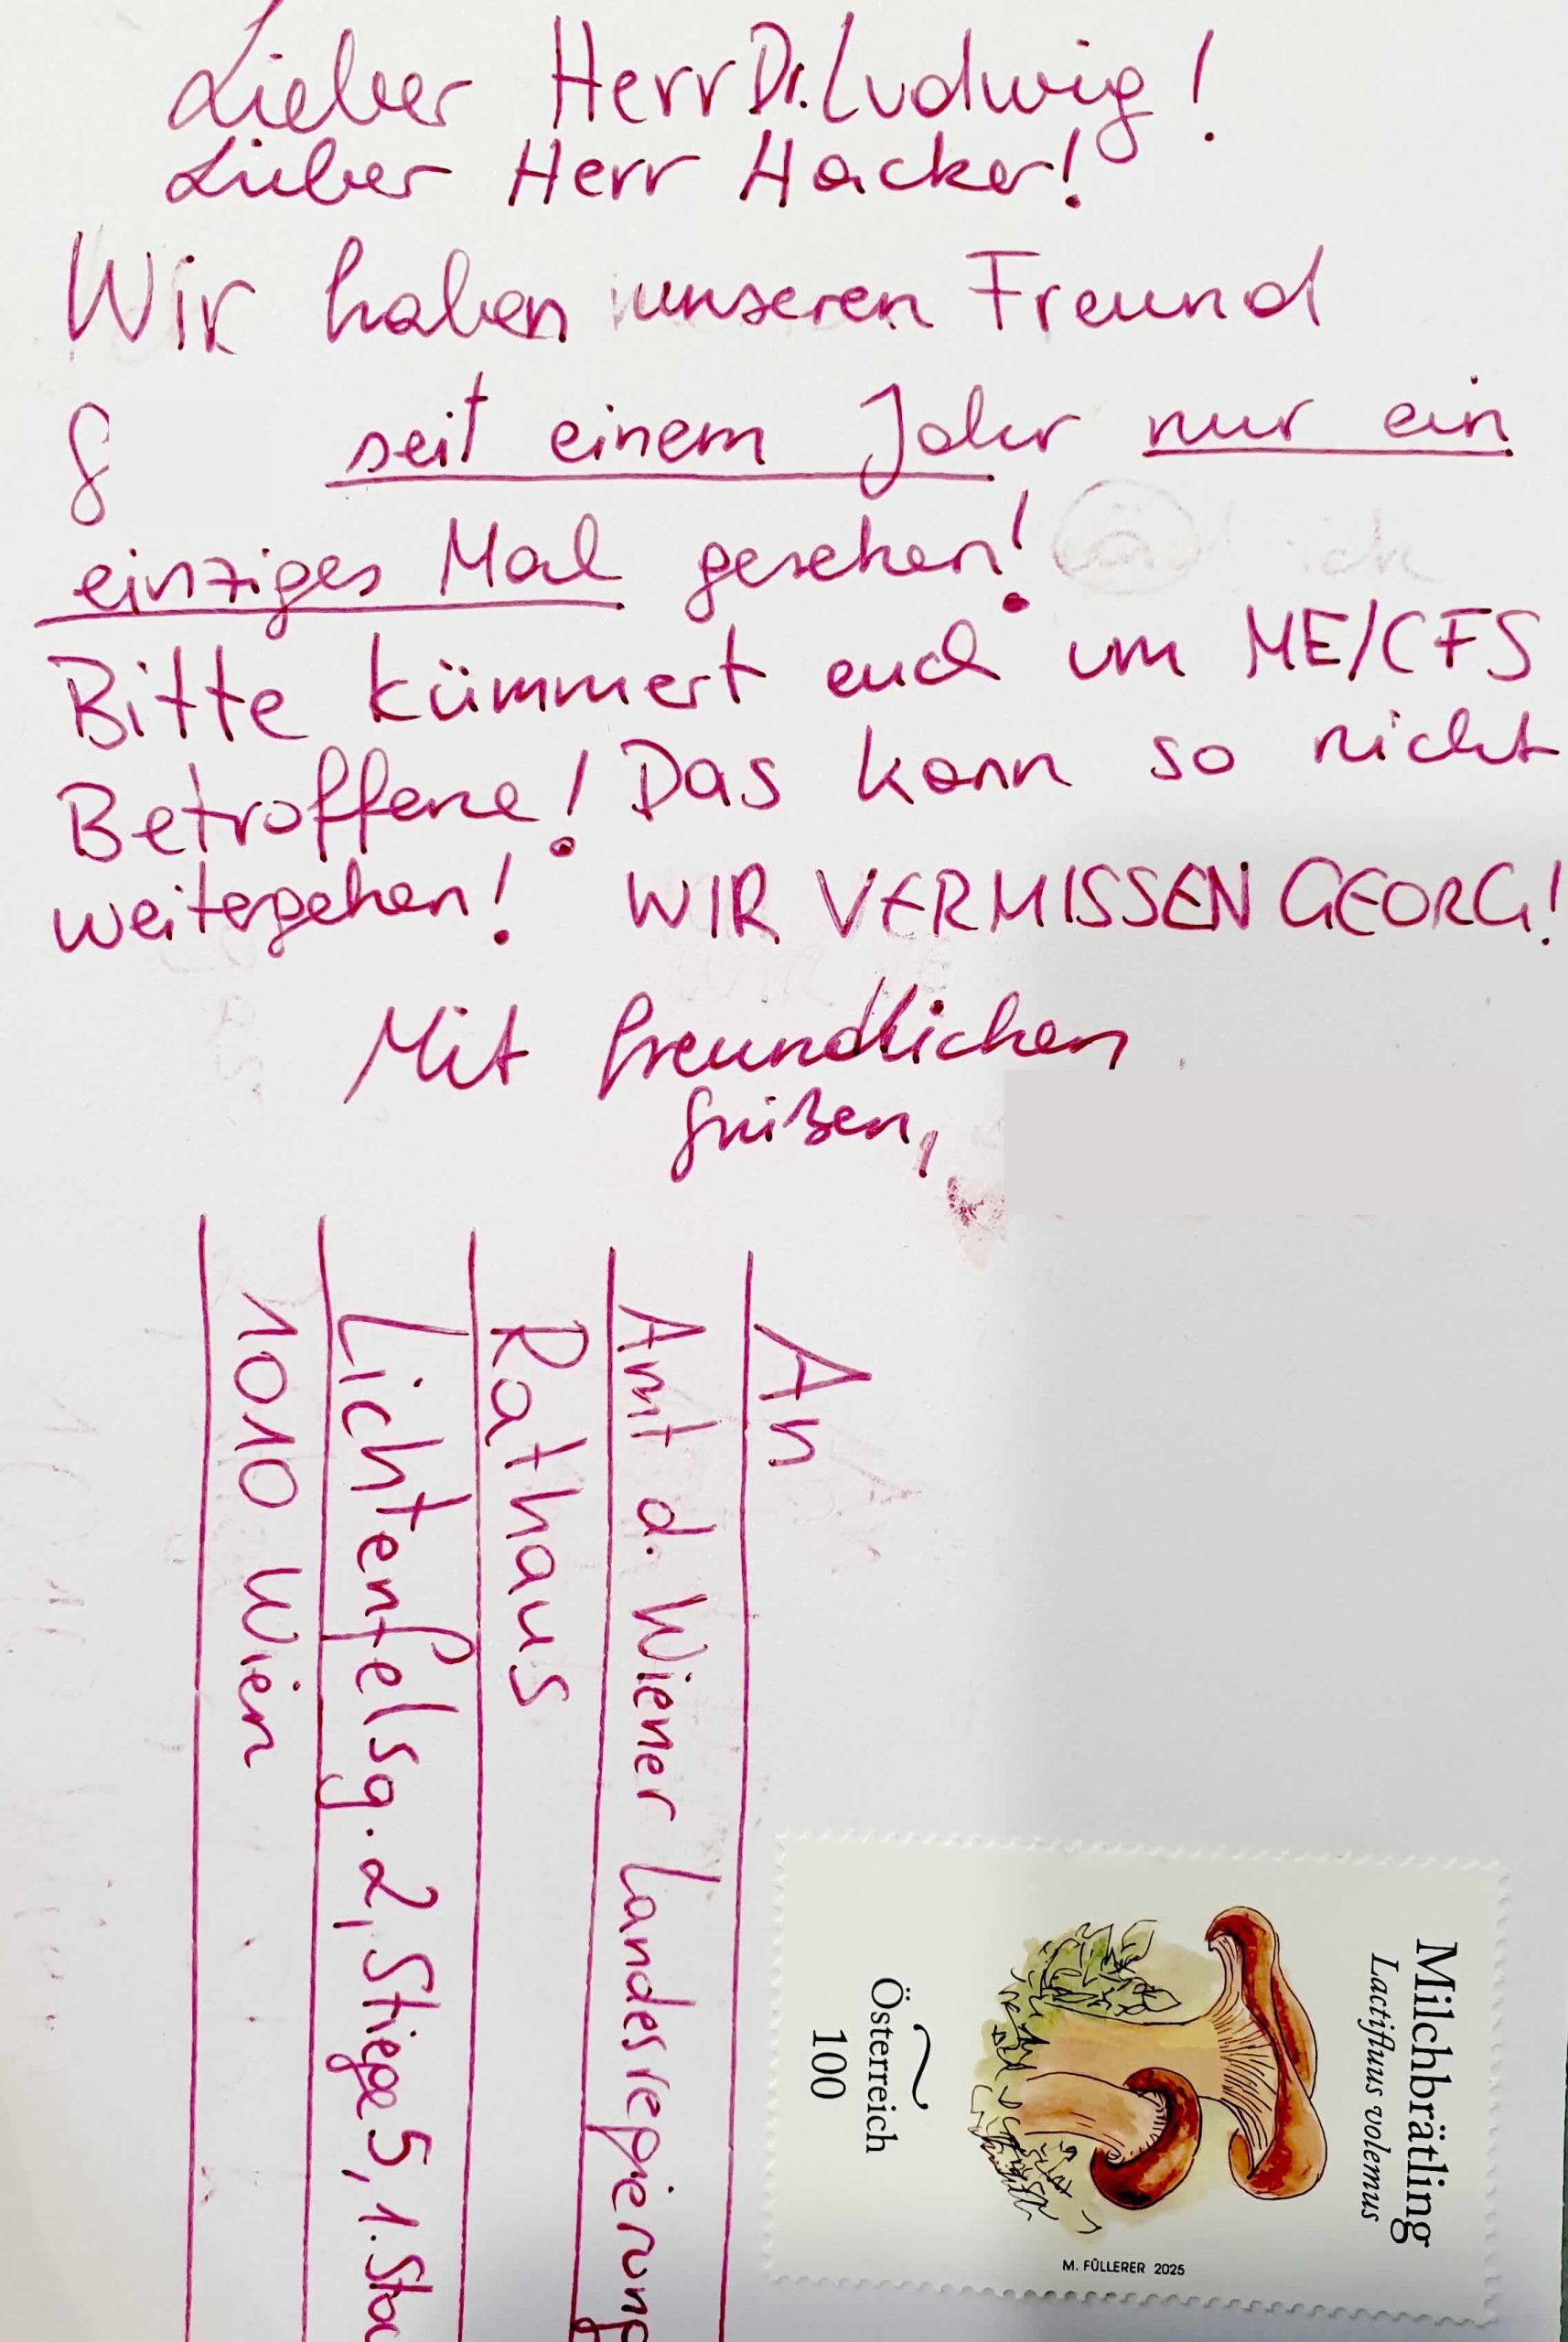 Lieber Herr Dr. Ludwig!
Lieber Herr Hacker!
Wir haben unseren Freund
seit einem Jahr nur ein
einziges Mal gesehen!
Bitte kümmert euch um ME/CFS
Betroffene! Das kann so nicht
weitergehen! WIR VERMISSEN GEORG!
Mit freundlichen
Grüßen,
An
Amt d. Wiener Landesregierung
Rathaus
Lichtenfelsg. 2, Stiege 5, 1. Sto
1010 Wien
Milchbrätling
Lactifluus volemus
Österreich
100
M. FÜLLERER 2025